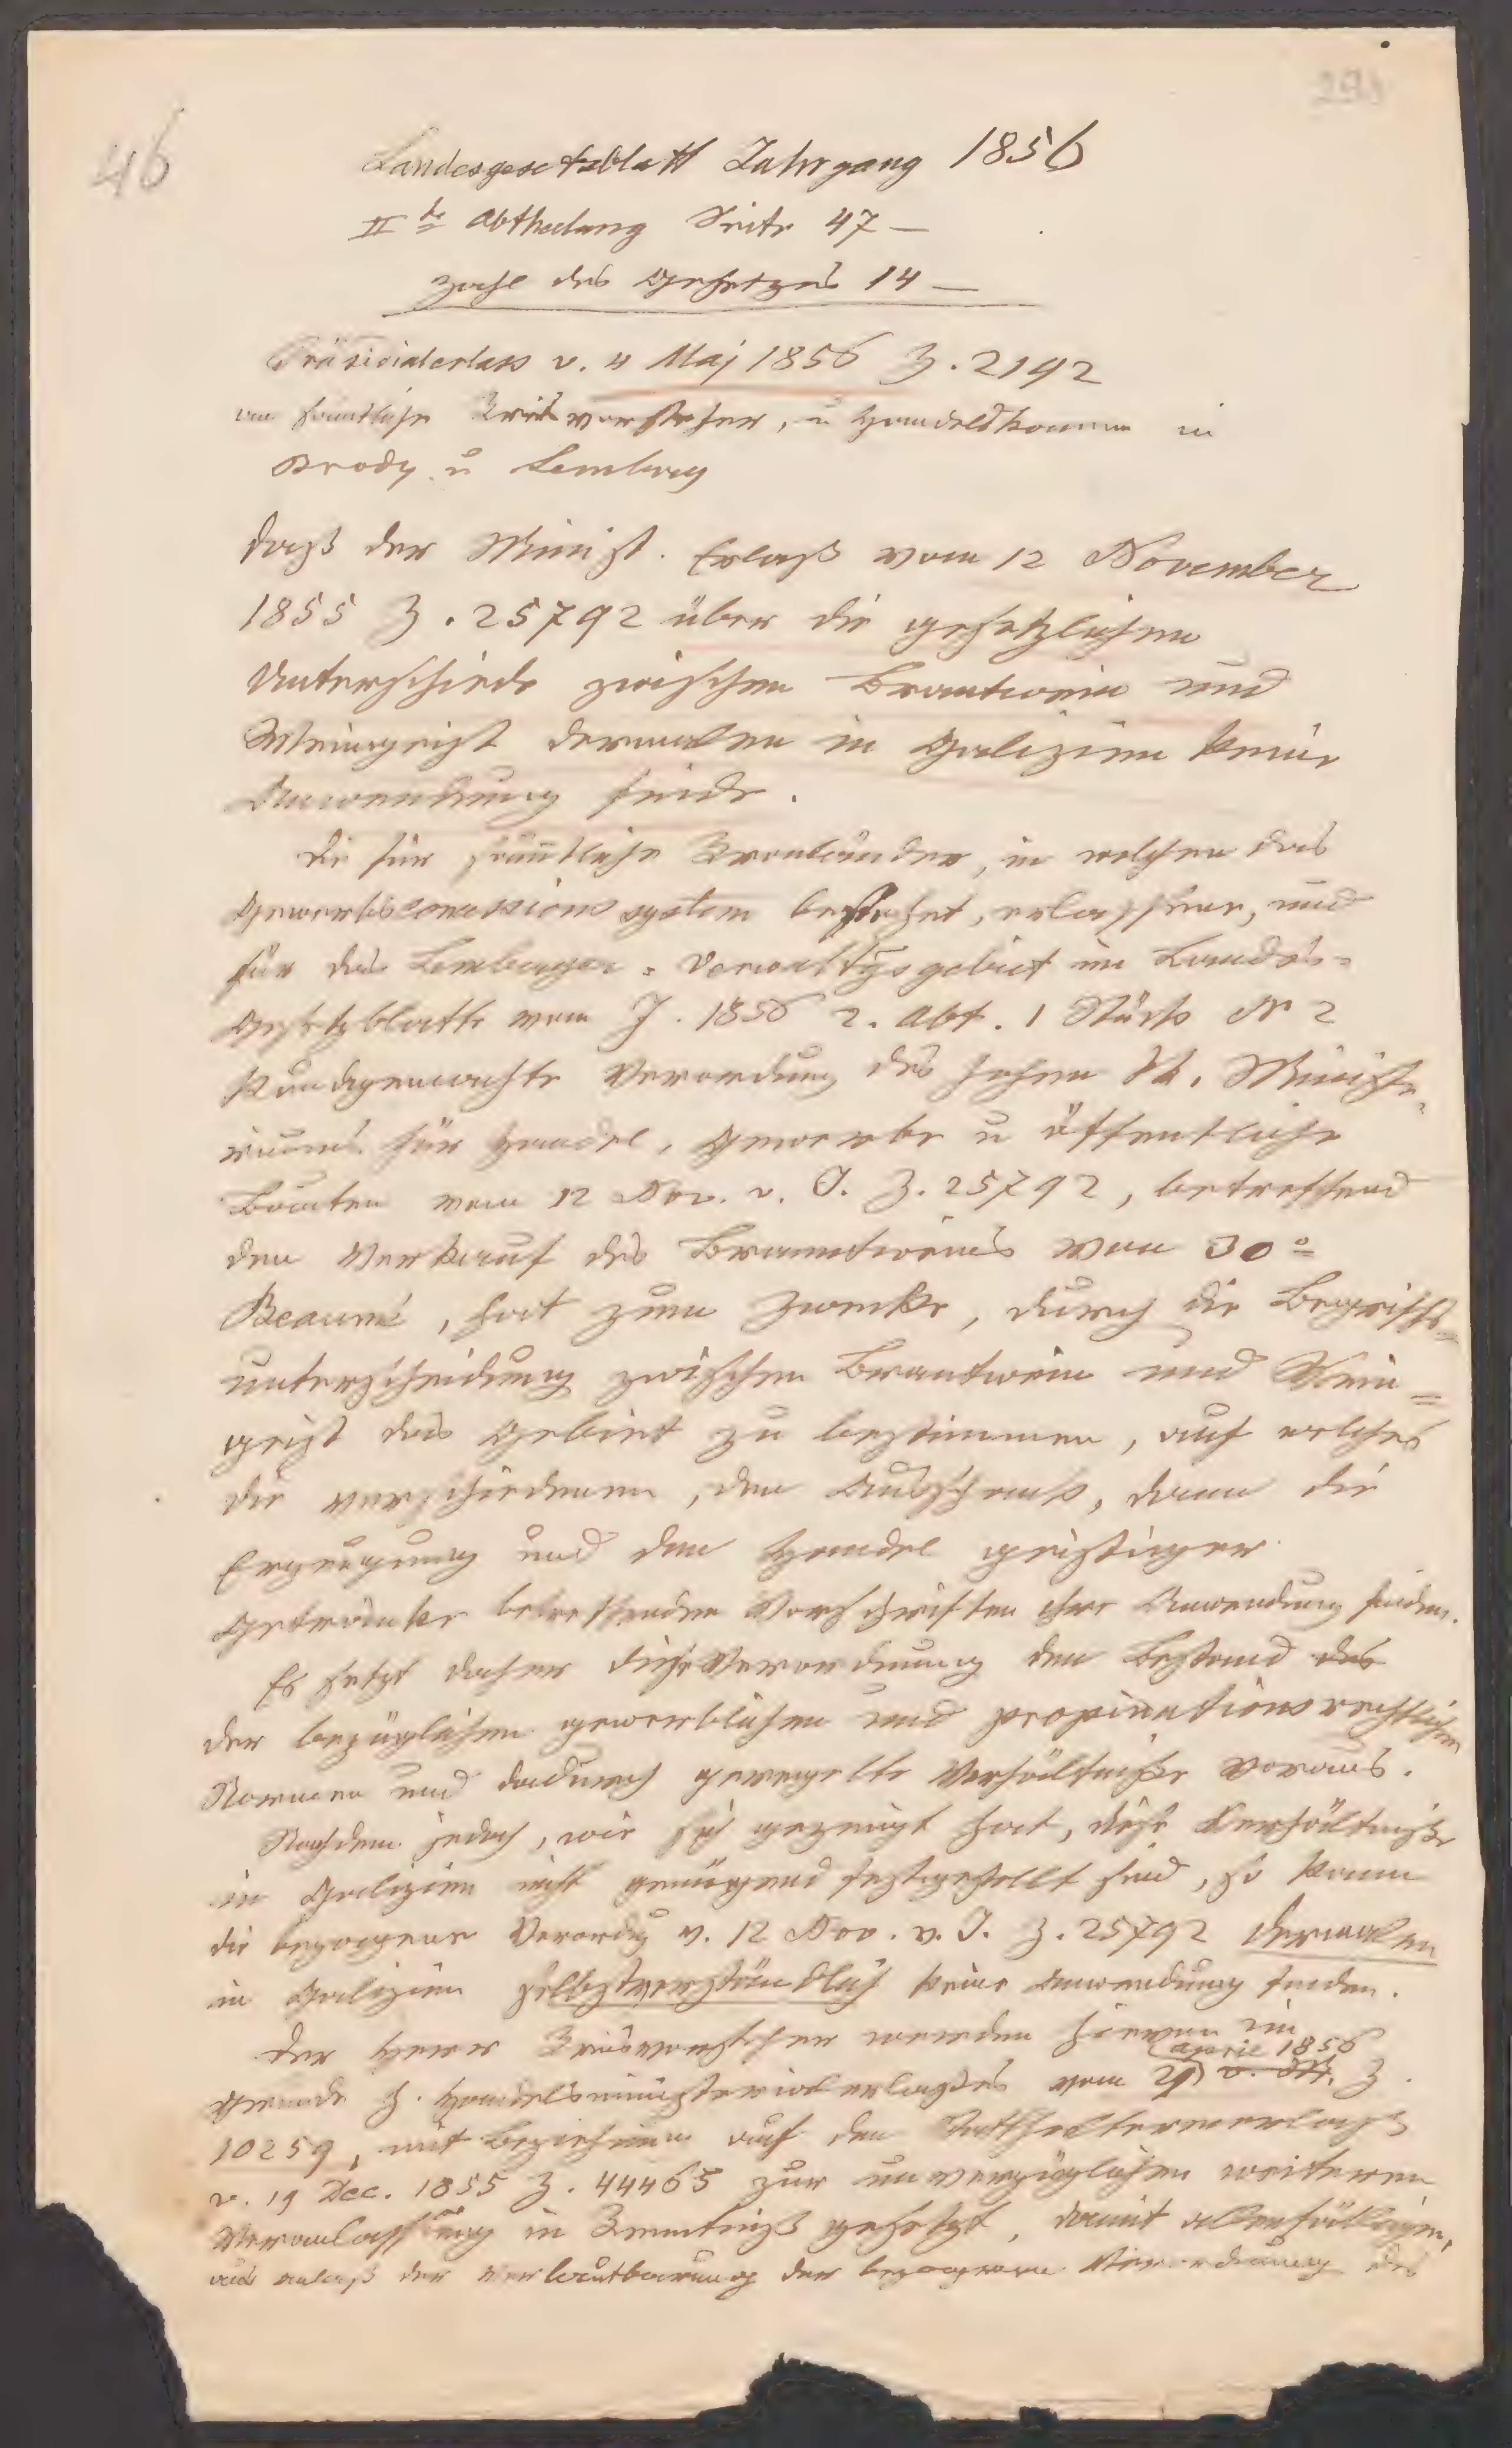 46
Landesgesetzblatt Jahrgang 1856
II te Abtheilung Seite 47 –
Zahl des Gesetzes 14 –
Präsidialerlass v. 4 Maj 1856 Z. 2192
an sämtliche Kreisvorsteher, u Handelskammer in
Brody u Lemberg
daß der Minist. Erlaß vom 12 November
1855 Z. 25792 über die gesetzlichen
Unterschiede zwischen Brantwein und
Weingeist dermalen in Galizien keine
Anwendung finde.
Die für sämtliche Kronländer, in welchen das
Gewerbsconcessions system bestehet, erlassene, und
für das Lemberger Verwaltgsgebiet im Landes=
Gesetzblatte vom J. 1856 2. Abt. 1 Stück N 2
kundgemachte Verordnung des hohen k. Ministe=
riums für Handel, Gewerbe u öffentliche
Bauten vom 12 Nov. v. J. Z. 25792, betreffend
den Verkauf des Branntweins von 30°
Beaumé, hat zum Zwecke, durch die Begriffs=
unterscheidung zwischen Brantwein und Wein=
geist das Gebiet zu bestimmen, auf welches
die verschiedenen, den Ausschank, dann die
Erzeugung und den Handel geistiger
Getränke betreffenden Vorschriften ihre Anwendung finden.
Es setzt daher diese Verordnung den Bestand des
der bezüglichen gewerblichen und propinationsrechtlichen
Normen und dadurch geregelte Verhältniße voraus.
Nachdem jedoch, wie sich gezeigt hat, diese Verhältniße
in Galizien nicht genügend festgestellt sind, so kann
die bezogene Verordg v. 12 Nov. v. J. Z. 25792 dermalen
in Galizien selbstverständlich keine Anwendung finden.
Der Herr Kreisvorsteher werden hievon im
April 1856
Grunde h. Handelsministerialerlaßes vom 29 v. Mt. Z.
10259, mit Beziehung auf den Statthaltereierlaß
v. 19 Dec. 1855 Z. 44465 zur unverzüglichen weiteren
Veranlassung in Kenntniß gesetzt, damit allenfälligen,
aus Anlaß der Verlautbarung der bezogenen Verordnung des